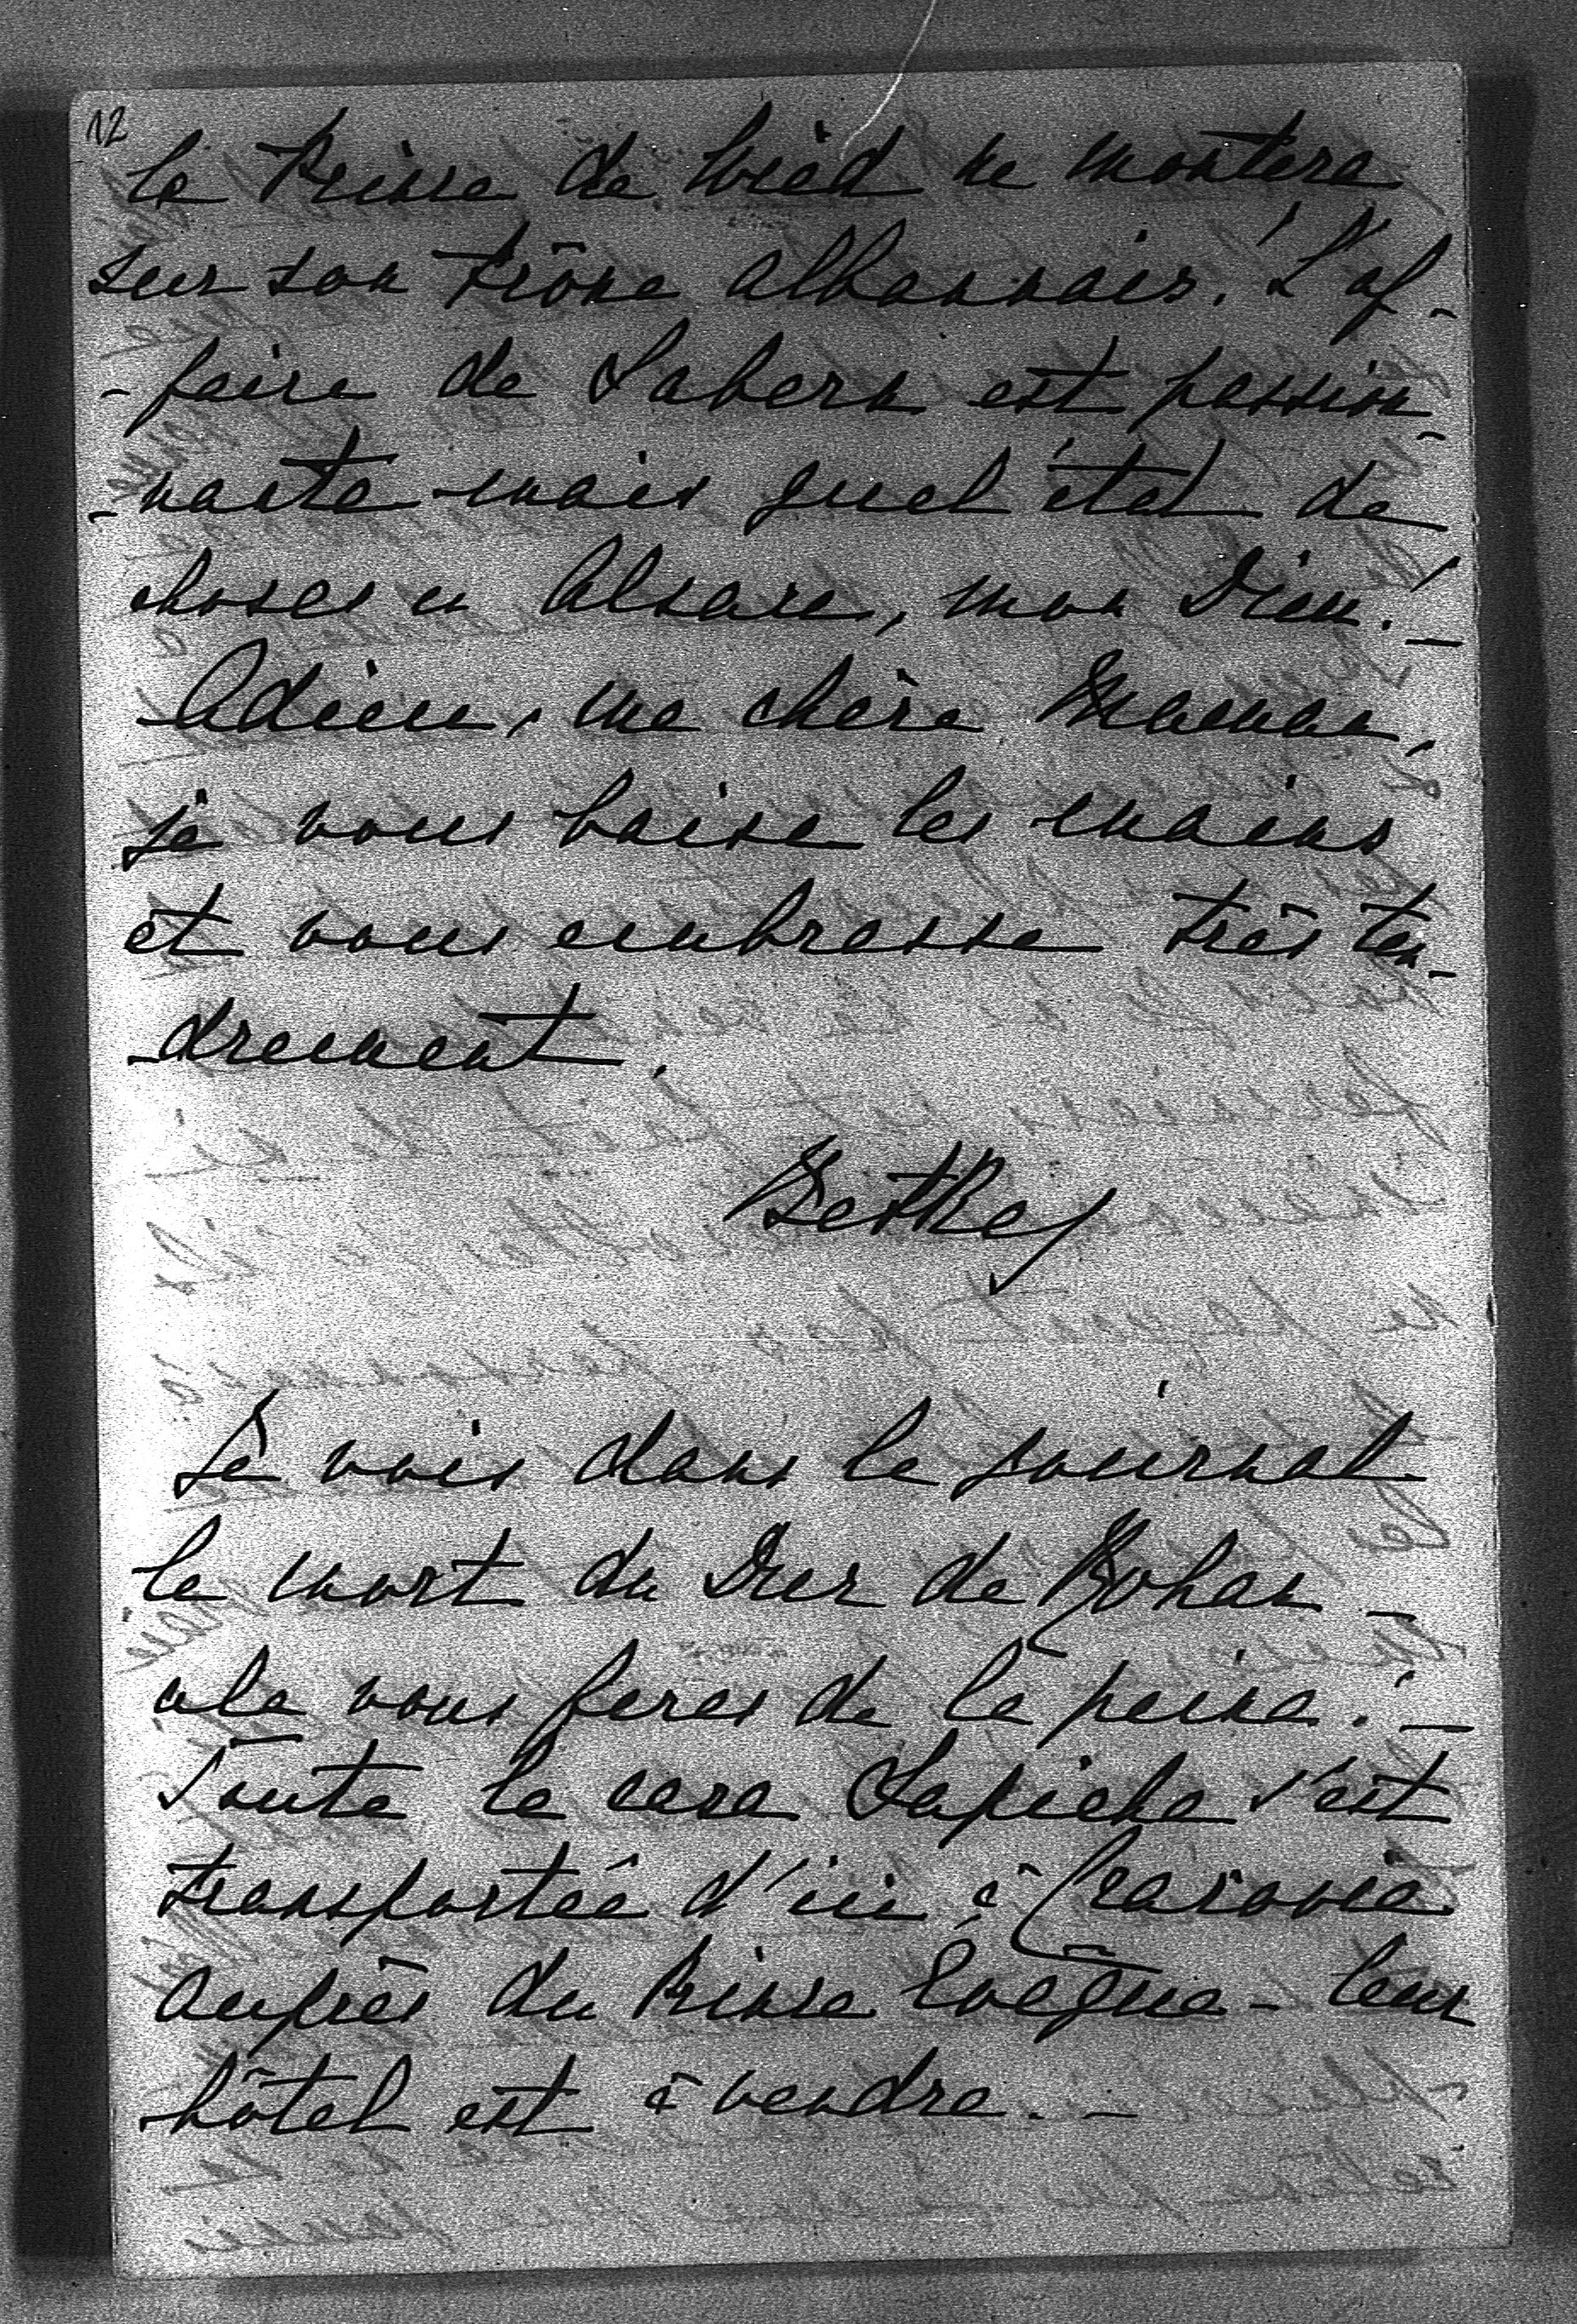 12
le Prince de Wied ne montera
sur son trône albannais. L'af-
-faire de Sabern est passion-
-nante mais quel état de
choses en Alsace, mon Dieu! –
Adieu, ma chère Maman,
je vous baise les mains
et vous embrasse très ten-
-drement.
Betka
Je vois dans le journal
la mort du Duc de Rohan –
cela vous feras de la peine. –
Toute la casa Sapieha s'est
transportée d'ici à Cracovie
auprès du Prince Evêque – leur
hôtel est à vendre. –